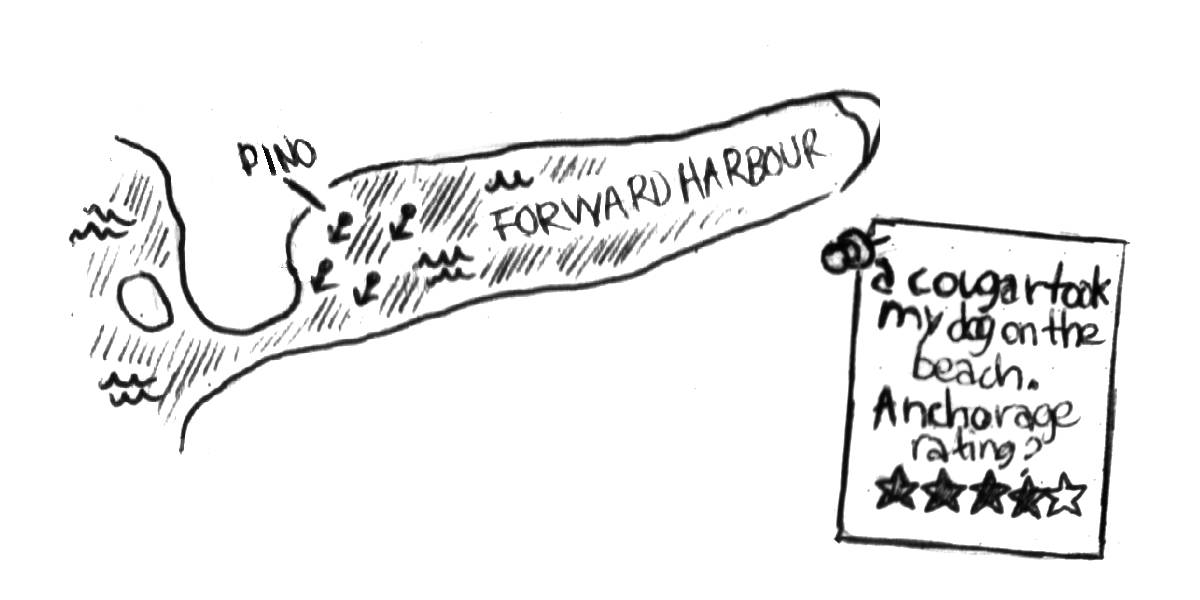 PINO
FORWARD HARBOUR
a cougar took
my dog on the
beach.
Anchorage
rating?